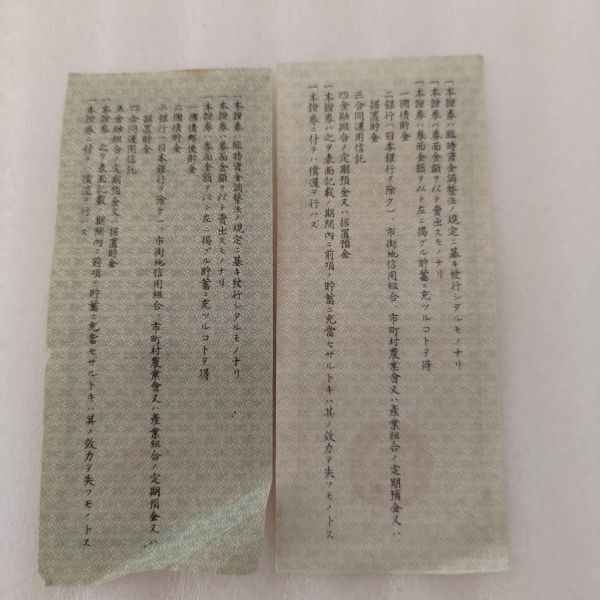 一、本證券ハ臨時資金調整法ノ規定ニ基キ發行シタルモノナリ
一、本證券ハ券面金額ヲ以テ賣出スモノナリ
一、本證券ハ券面金額ヲ以テ左ニ揭グル貯蓄ニ充ツルコトヲ得
一國債貯金
二銀行(日本銀行ヲ除ク)、市街地信用組合、市町村農業會又ハ產業組合ノ定期預金又ハ
据置貯金
三合同運用信託
四金融組合ノ定期預金又ハ据置預金
一、本證券ハ之ヲ表面記載ノ期間內ニ前項ノ貯蓄ニ充當セザルトキハ其ノ效力ヲ失フモノトス
一、本證券ニ付テハ償還ヲ行ハズ
一、本證券ハ臨時資金調整法ノ規定ニ基キ發行シタルモノナリ
一、本證券ハ券面金額ヲ以テ賣出スモノナリ
一、本證券ハ券面金額ヲ以テ左ニ揭グル貯蓄ニ充ツルコトヲ得
一國債郵便貯金
二國債貯金
三銀行(日本銀行ヲ除ク)、市街地信用組合、市町村農業會又ハ產業組合ノ定期預金又ハ
据置貯金
四合同運用信託
五金融組合ノ定期預金又ハ据置貯金
一、本證券ハ之ヲ表面記載ノ期間內ニ前項ノ貯蓄ニ充當セザルトキハ其ノ效力ヲ失フモノトス
一、本證券ニ付テハ償還ヲ行ハズ